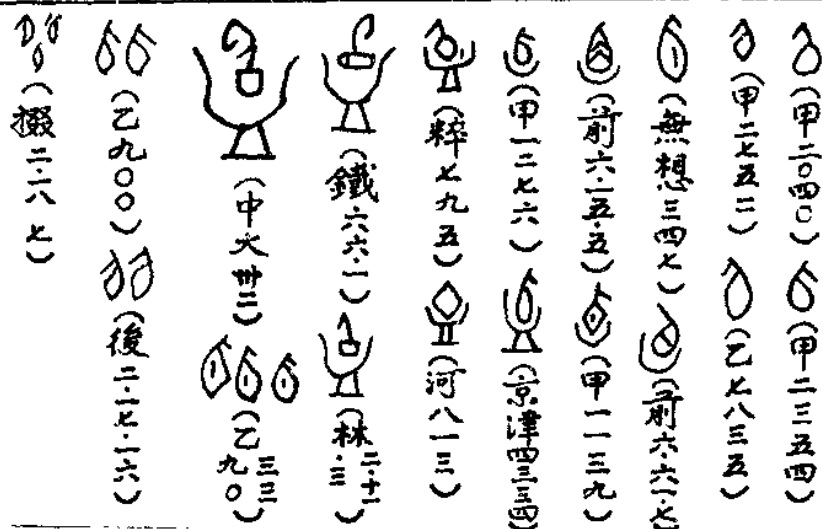 (甲二〇四〇) (甲二三五四)
(甲二七五二) (乙七八三五)
(無想三四七) (前六·六一·七)
(前六·一五·五) (甲一一三九)
(甲一二七六) (京津四三三四)
(粹七九五) (河八一三)
(鐵·六六·一) (林二·十一·三)
(中大卅二) (乙三三九〇)
(乙九〇〇) (後二·一七·一六)
(掇二·一八七)